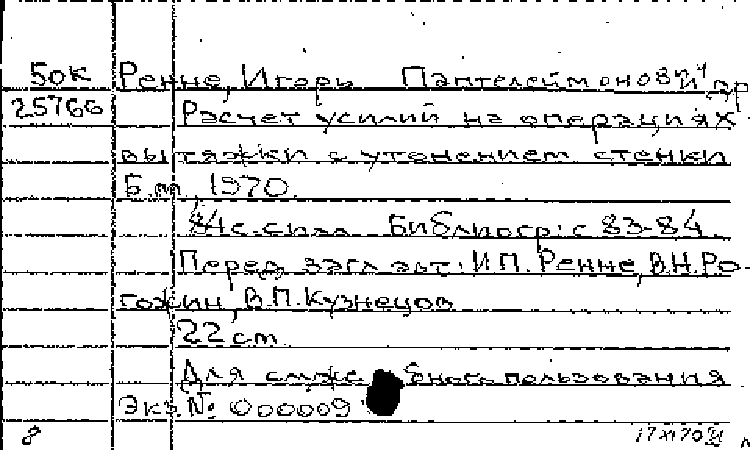 50К Ренне, Игорь Пантелеймонович и др
25766 Расчет усилий на операциях
вытяжки с утонением стенки
Б.м, 1970.
84 с. с илл. Библиогр: с 83-84.
Перед загл авт: И.П. Ренне, В.Н. Ро-
гожин, В.П. Кузнецов
22 см.
Для служебного пользования
Экз. № 000009
8 17 XI 70